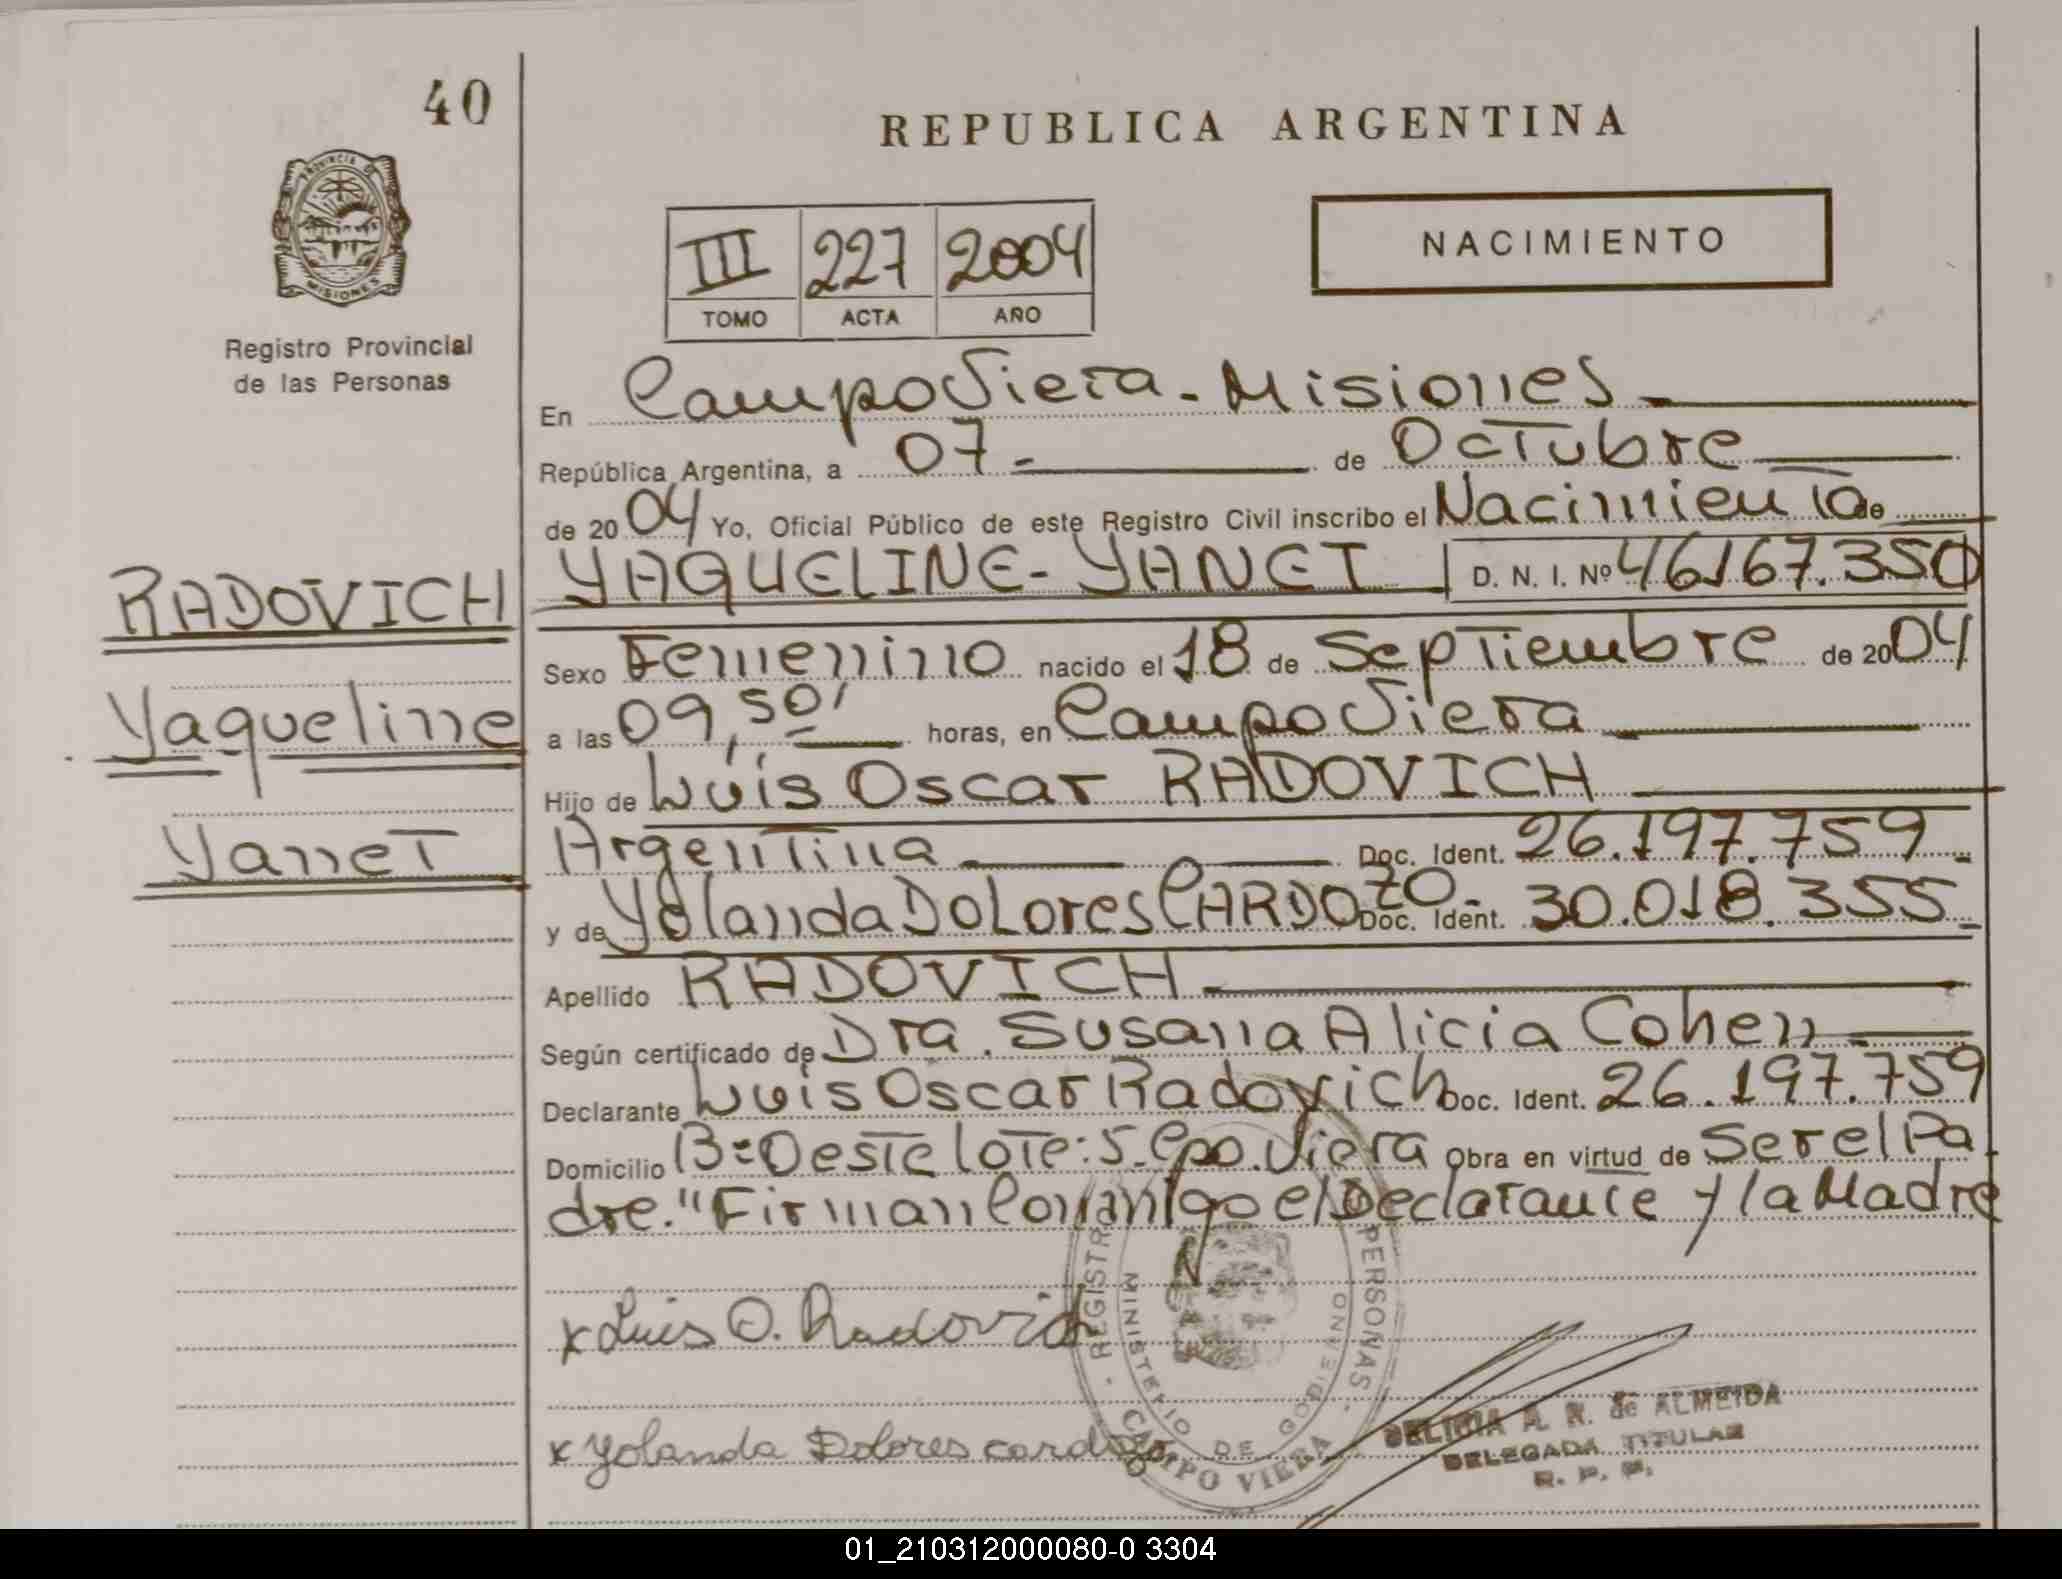 40
REPUBLICA ARGENTINA
PROVINCIA DE
MISIONES
Registro Provincial
de las Personas
III 227 2004
TOMO ACTA AÑO
NACIMIENTO
En Campo Viera - Misiones
República Argentina, a 07 - de Octubre
de 2004 Yo, Oficial Público de este Registro Civil inscribo el Nacimiento de
RADOVICH
Yaqueline
Yanet
YAQUELINE - YANET D. N. I. Nº 46167.350
Sexo Femenino nacido el 18 de Septiembre de 2004
a las 09,50' horas, en Campo Viera
Hijo de Luis Oscar RADOVICH
Argentina Doc. Ident. 26.197.759
y de Yolanda Dolores CARDOZO - Doc. Ident. 30.018.355
Apellido RADOVICH
Según certificado de Dra. Susana Alicia Cohen
Declarante Luis Oscar Radovich Doc. Ident. 26.197.759
Domicilio Bº Oeste Lote: 5. Cpo. Viera Obra en virtud de Ser el Pa
dre. "Firman Conmigo el Declarante y la Madre
x Luis O. Radovich
x Yolanda Dolores cardozo
REGISTR PERSONAS
MINISTERIO DE GOBIERNO
CAMPO VIERA
DELICIA A. R. de ALMEIDA
DELEGADA TITULAR
R. P. P.
01_210312000080-0 3304